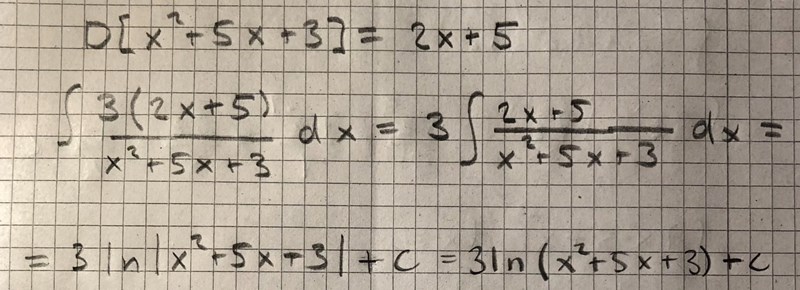 D[x²+5x+3] = 2x+5
∫ 3(2x+5)/(x²+5x+3) dx = 3 ∫ (2x+5)/(x²+5x+3) dx =
= 3 ln|x²+5x+3| + c = 3ln(x²+5x+3) + c